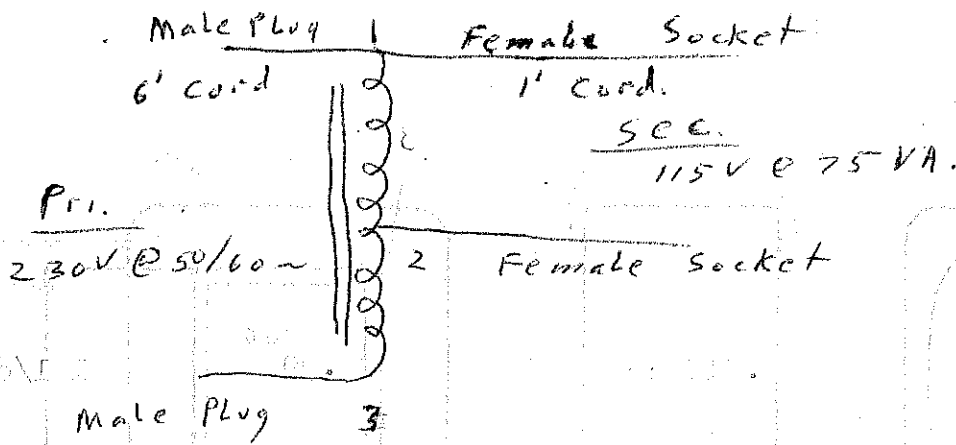 Male Plug 1 Female Socket
6' Cord 1' Cord.
Sec.
115V @ 75 VA.
Pri.
230V @ 50/60~ 2 Female Socket
Male Plug 3